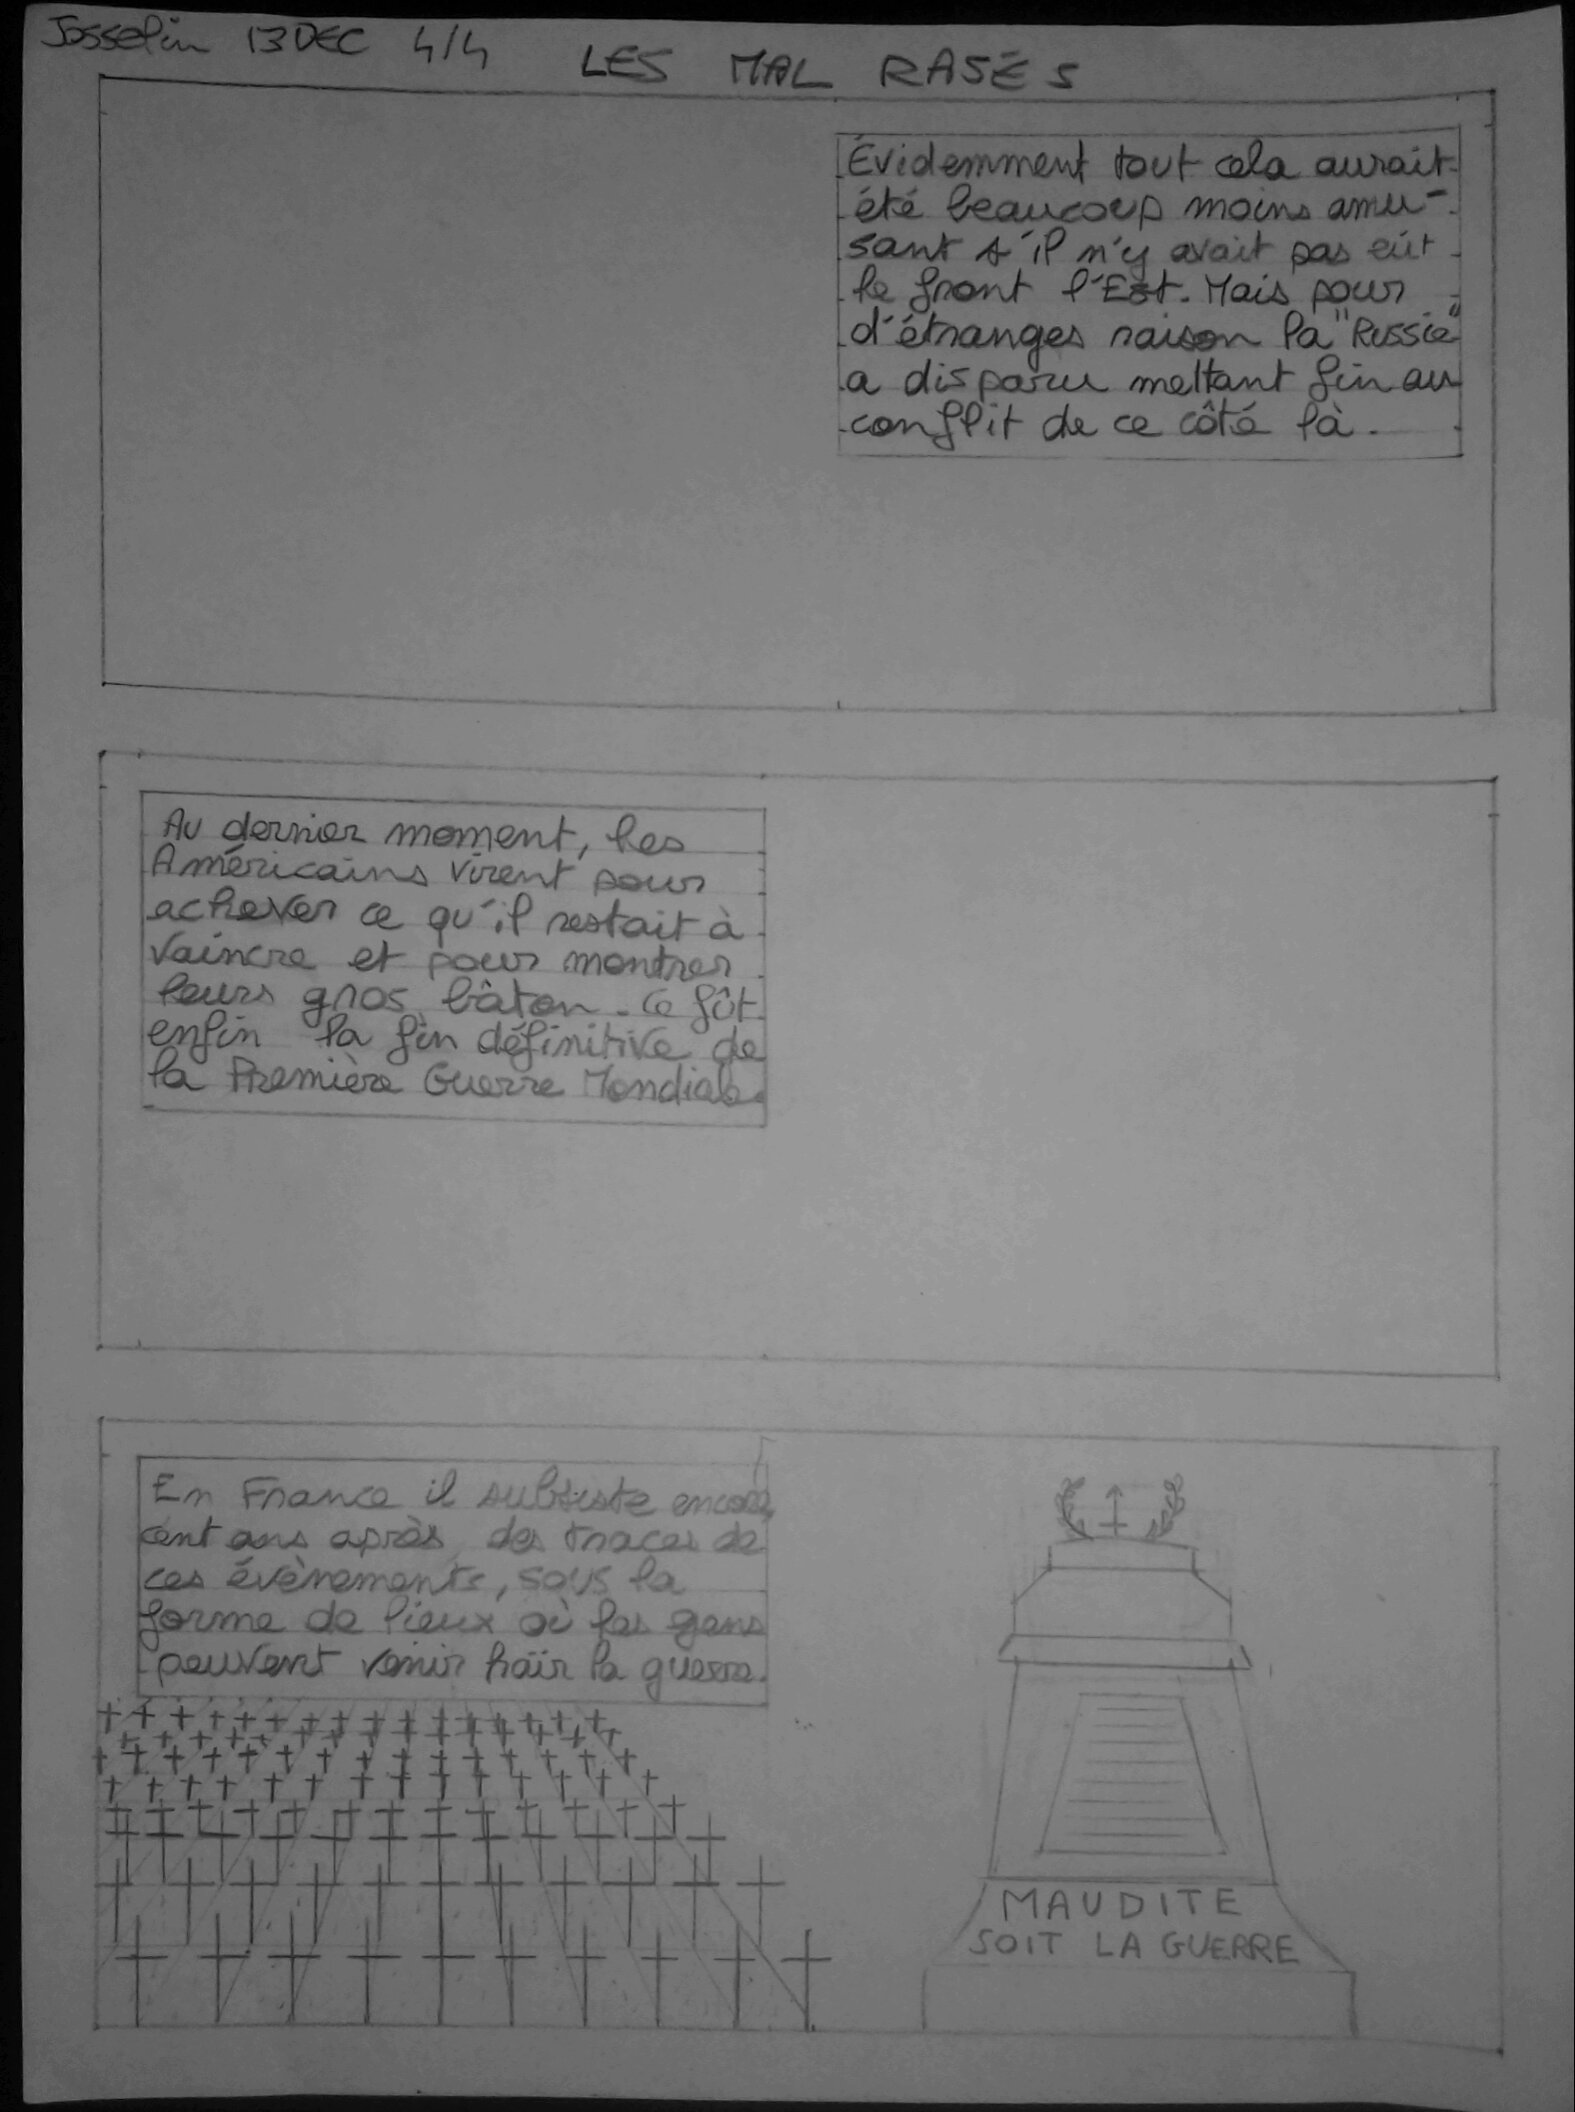 Josselin 13 DEC 4/4 LES MAL RASÉS
Évidemment tout cela aurait
été beaucoup moins amu-
sant s'il n'y avait pas eût
le front l'Est. Mais pour
d'étranges raison la "Russie"
a disparu mettant fin au
conflit de ce côté là.
Au dernier moment, les
Américains virent pour
achever ce qu'il restait à
vaincre et pour montrer
leurs gros bâton. Ce fût
enfin la fin définitive de
la Première Guerre Mondiale.
En France il subsiste encore,
cent ans après, des traces de
ces évènements, sous la
forme de lieux où les gens
peuvent venir haïr la guerre.
MAUDITE
SOIT LA GUERRE